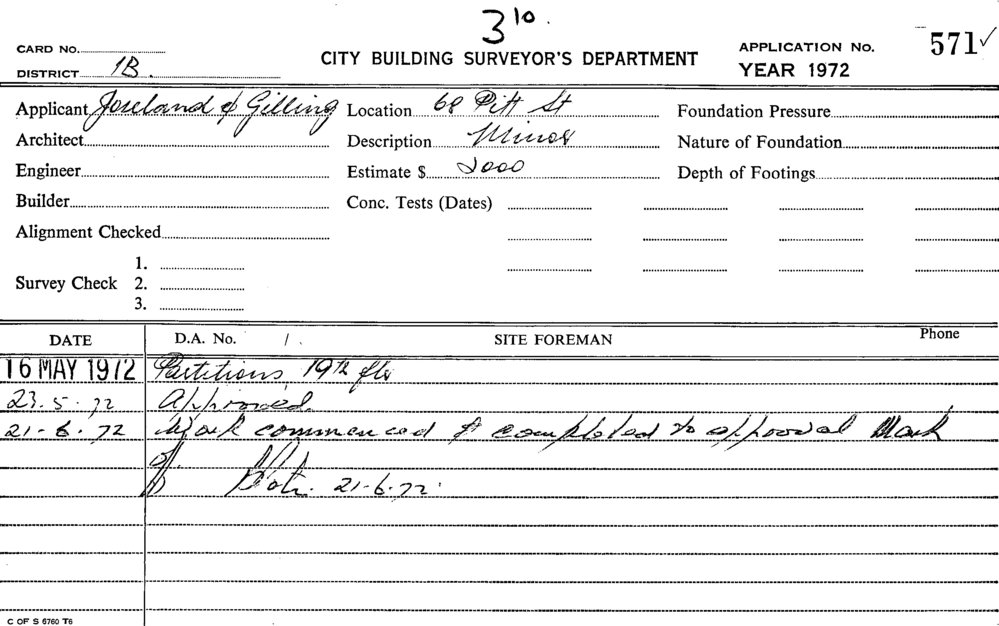 3 10.
CARD No.
CITY BUILDING SURVEYOR'S DEPARTMENT
APPLICATION No. 571 ✓
DISTRICT 1B.
YEAR 1972
Applicant Joseland & Gilling Location 68 Pitt St Foundation Pressure
Architect Description Minor Nature of Foundation
Engineer Estimate $ 2000 Depth of Footings
Builder Conc. Tests (Dates)
Alignment Checked
1.
Survey Check 2.
3.
DATE D.A. No. / . SITE FOREMAN Phone
16 MAY 1972 Partitions, 19th flr
23.5.72 Approved.
21-6.72 Work commenced & completed to approval Mark
off. 21-6-72.
C OF S 6760 T6